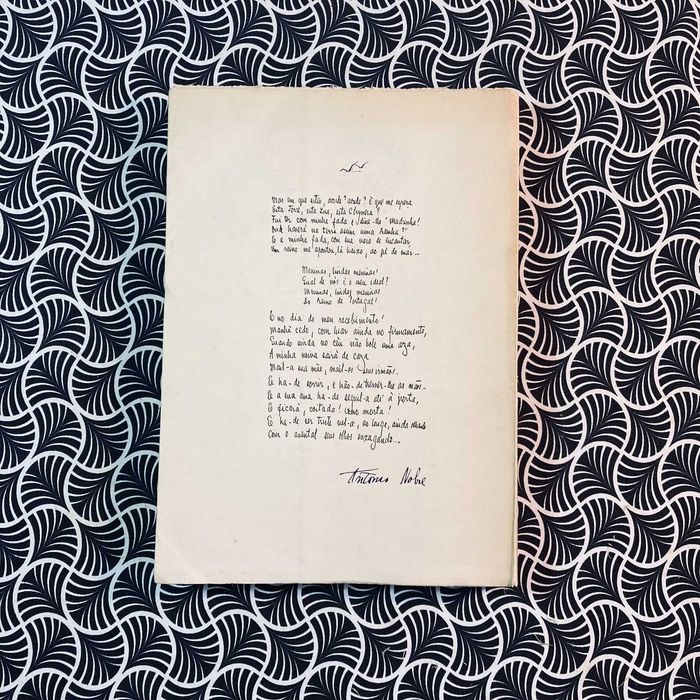 Mas em que sitio, aonde? aonde? é que me espera
Esta Torre, esta Lua, esta Chymera?
Fui ter com minha fada e disse-lhe "Madrinha!
Onde haverá na terra assim uma Rainha?"
E a minha fada, com sua vara de encantar
Um reino me apontou, lá baixo, ao pé do mar...
Meninas, lindas meninas!
Qual de vós é o meu ideal?
Meninas, lindas meninas
Do Reino de Portugal!
E no dia do meu recebimento!
Manhã cedo, com luar ainda no firmamento,
Quando ainda no céu não bole uma aza,
A minha noiva sairá de caza
Mail-a sua mãe, mail-os seus irmãos.
Ha-de sorrir, e hão-de tremer-lhe as mãos...
E a sua ama ha-de seguil-a até á porta,
E ficará, coitada! como morta!
E ha-de ser triste vel-a, ao longe, ainda
Com o avental seus olhos enxugando...
Antonio Nobre